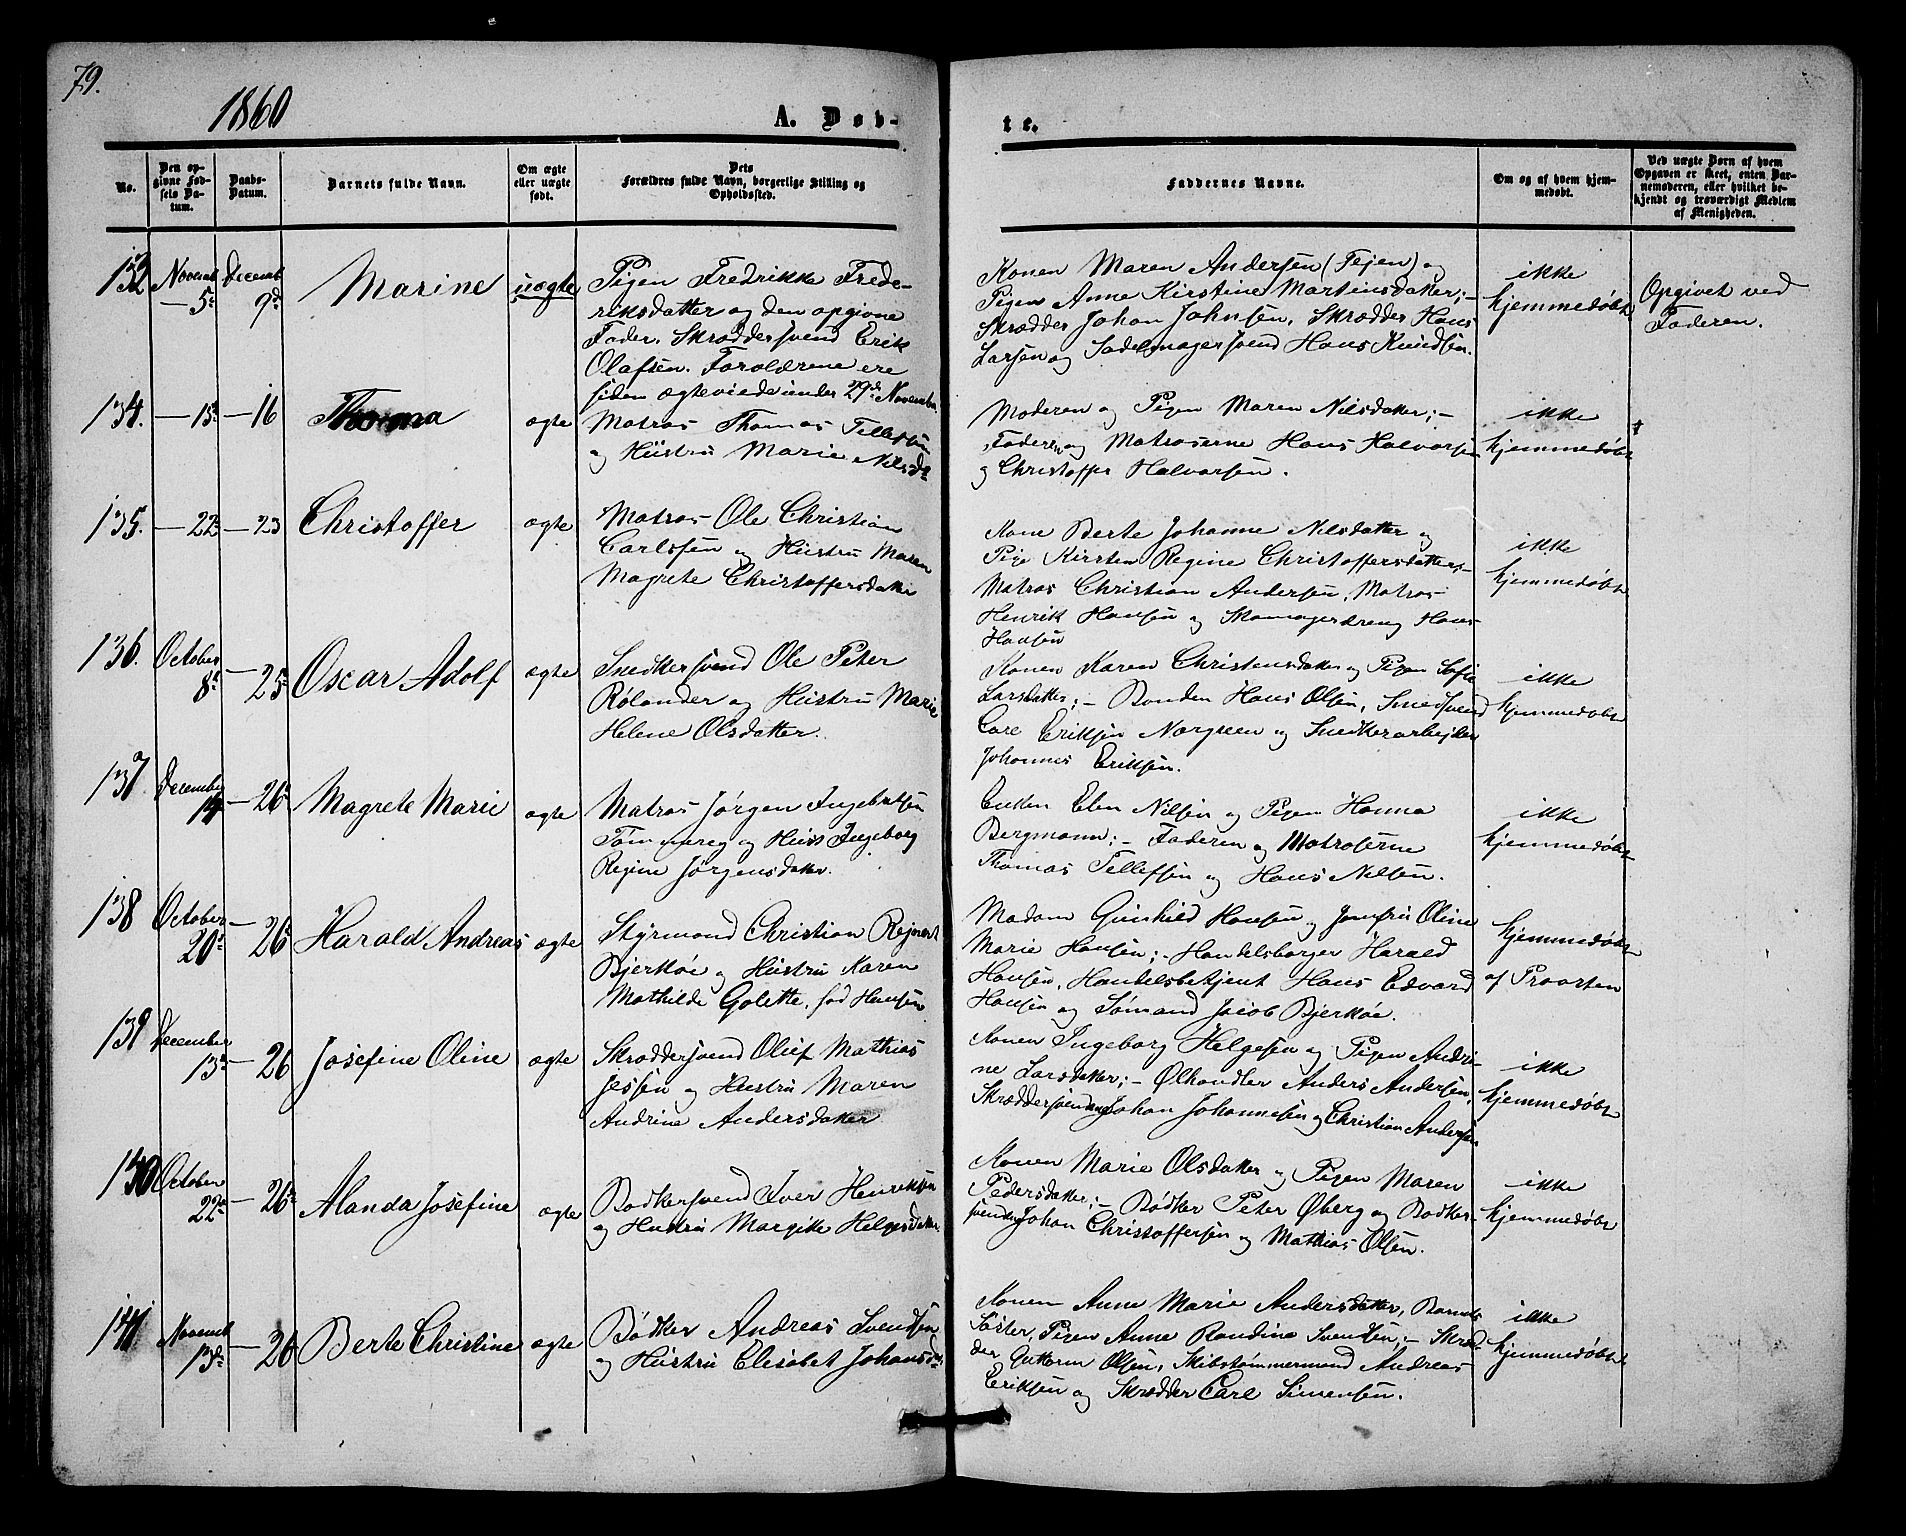 79.
1860
A. Døb-
te.
No.
Den op-
givne Fød-
sels Da-
tum.
Daabs-
Datum.
Barnets fulde Navn.
Om ægte
eller uægte
født.
Dets
Forældres fulde Navn, borgerlige Stilling og
Opholdssted.
Faddernes Navne.
Om og af hvem hjem-
medøbt.
Ved uægte Børn af hvem
Opgaven er skeet, enten Bar-
nemoderen, eller hvilket be-
kjendt og troværdigt Medlem
af Menigheden.
Novemb
5
Decemb
9d
Marine
uægte
Pigen Fredrikke Frede-
riksdatter og den opgivne
Fader, Skræddersvend Erik
Olafsen. Forældrene ere
siden ægteviede under 29de November
Konen Maren Andersen (Tejen) og
Pigen Anne Kirstine Martinsdatter; -
Skrædder Johan Johnsen, Skrædder Hans
Larsen og Sadelmagersvend Hans Knudsen.
ikke
hjemmedøbt
Opgivet ved
Faderen.
134. — 15 — 16
Thoma
ægte
Matros Thomas Tellefsen
og Hustru Marie Nilsd
Moderen og Pigen Maren Nilsdatter; -
Faderen og Matroserne Hans Halvorsen
og Christoffer Halvorsen.
ikke
hjemmedøbt
135. — 22 — 23
Christoffer
ægte
Matros Ole Christian
Carlsen og Hustru Maren
Magrete Christoffersdatter
Kone Berte Johanne Nilsdatter og
Pige Kirsten Regine Christoffersdatter; -
Matros Christian Andersen, Matros
Henrik Hansen og Skomagerdreng Hans
Hansen
ikke
hjemmedøbt
136. October
8 — 25
Oscar Adolf
ægte
Snedkersvend Ole Peter
Rolander og Hustru Marie
Helene Olsdatter.
Konen Karen Christensdatter og Pigen Sofie
Larsdatter; - Bonden Hans Olsen, Smedsvend
Carl Eriksen Norgreen og Snedkerarbejder
Johannes Eriksen.
ikke
hjemmedøbt
137 December
14 — 26
Magrete Marie
ægte
Matros Jørgen Ingebretsen
Tommereg og Hust Ingeborg
Regine Jørgensdatter.
Enken Elen Nilsen og Pigen Hanna
Bergmann; - Faderen og Matroserne
Thomas Tellefsen og Hans Nilsen.
ikke
hjemmedøbt
138 October
20 — 26
Harald Andreas
ægte
Styrmand Christian Rejnert
Bjerkøe og Hustru Karen
Mathilde Golette, fød Hansen
Madam Gunhild Hansen og Jomfru Oline
Marie Hansen; - Handelsborger Harald
Hansen, Handelsbetjent Hans Edvard
Hansen og Sømand Jacob Bjerkøe.
hjemmedøbt
af Proosten
139 December
13 — 26
Josefine Oline
ægte
Skræddersvend Oluf Mathias
Jessen og Hustru Maren
Andrine Andersdatter
Konen Ingeborg Helgesen og Pigen Andri-
ne Larsdatter; - Ølhandler Anders Andersen,
Skræddersvendene Johan Johannesen og Christian Andersen
ikke
hjemmedøbt
140 October
22 — 26
Alanda Josefine
ægte
Bødkersvend Iver Henriksen
og Hustru Margitte Helgesdatter
Konen Marie Olsdatter og Pigen Maren
Pedersdatter; - Bødker Peter Øberg og Bødker-
svendene Johan Christoffersen og Mathias Olsen.
ikke
hjemmedøbt
141 Novemb
13 — 26
Berte Christine
ægte
Bødker Andreas Svendsen
og Hustru Elisabet Johansd
Konen Anne Marie Andersdatter, Barnets
Søster, Pigen Anne Randine Svendsen; - Skræd-
der Guttorm Olsen, Skibstømmermand Andreas
Eriksen og Skrædder Carl Simensen.
ikke
hjemmedøbt